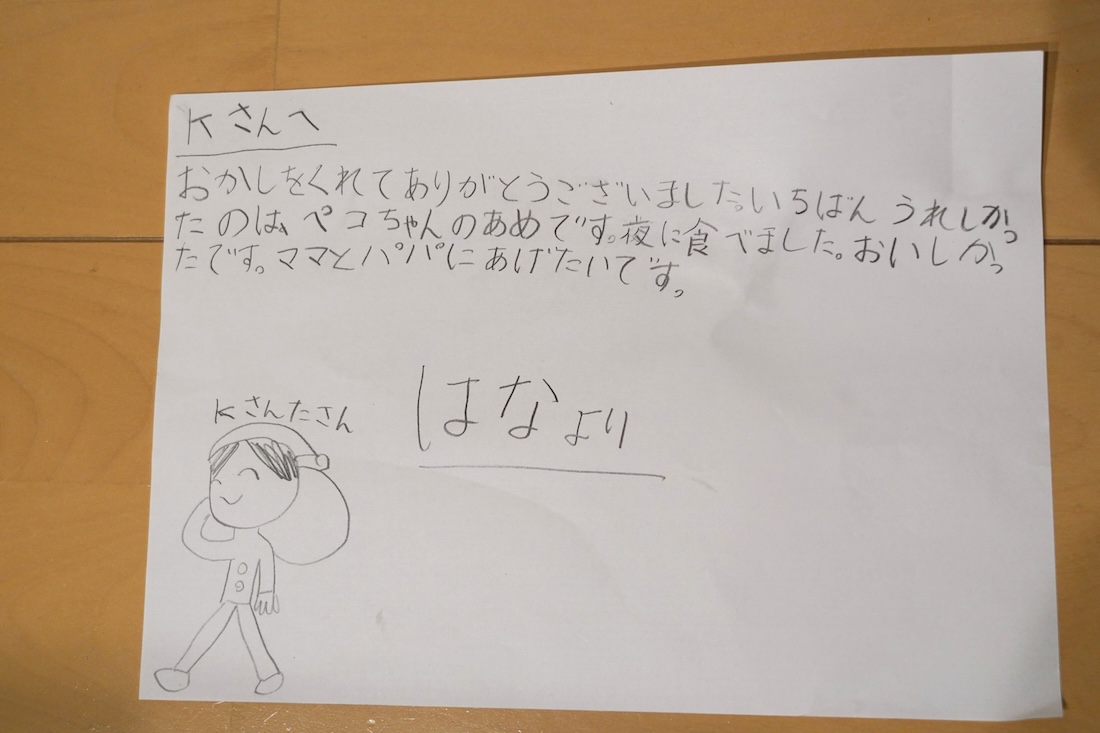 Kさんへ
おかしをくれてありがとうございました。いちばん うれしかっ
たのは、ペコちゃんのあめです。夜に食べました。おいしかっ
たです。ママとパパにあげたいです。
はなより
Kさんたさん